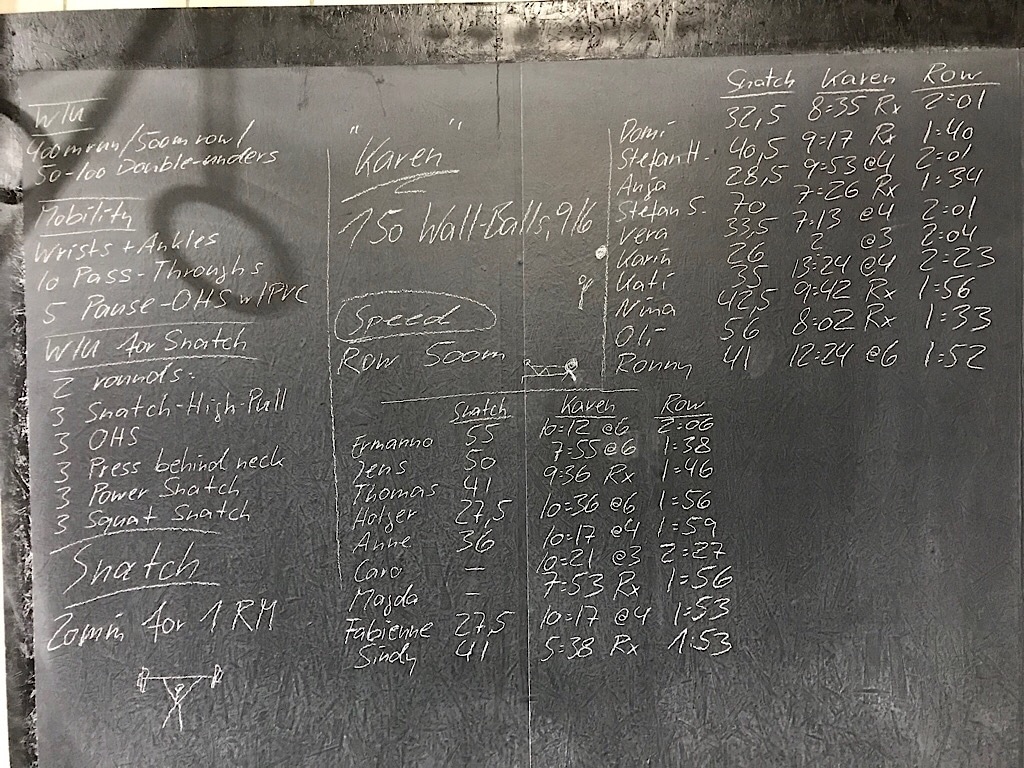 W/U
400m run/500m row/
50-100 Double-unders
Mobility
Wrists + Ankles
10 Pass-Throughs
5 Pause-OHS w/PVC
W/U for Snatch
2 rounds:
3 Snatch-High-Pull
3 OHS
3 Press behind neck
3 Power Snatch
3 Squat Snatch
Snatch
20min for 1 RM
"Karen"
150 Wall-Balls, 9/6
Speed
Row 500m
Snatch Karen Row
Ermanno 55 10:12 @6 2:06
Jens 50 7:55 @6 1:38
Thomas 41 9:36 Rx 1:46
Holger 27,5 10:36 @6 1:56
Anne 36 10:17 @4 1:59
Caro — 10:21 @3 2:27
Magda — 7:53 Rx 1:56
Fabienne 27,5 10:17 @4 1:53
Sindy 41 5:38 Rx 1:53
Snatch Karen Row
Domi 32,5 8:35 Rx 2:01
Stefan H. 40,5 9:17 Rx 1:40
Anja 28,5 9:53 @4 2:01
Stefan S. 70 7:26 Rx 1:34
Vera 33,5 7:13 @4 2:01
Karin 26 ? @3 2:04
Kati 35 13:24 @4 2:23
Nina 42,5 9:42 Rx 1:56
Oli 56 8:02 Rx 1:33
Ronny 41 12:24 @6 1:52